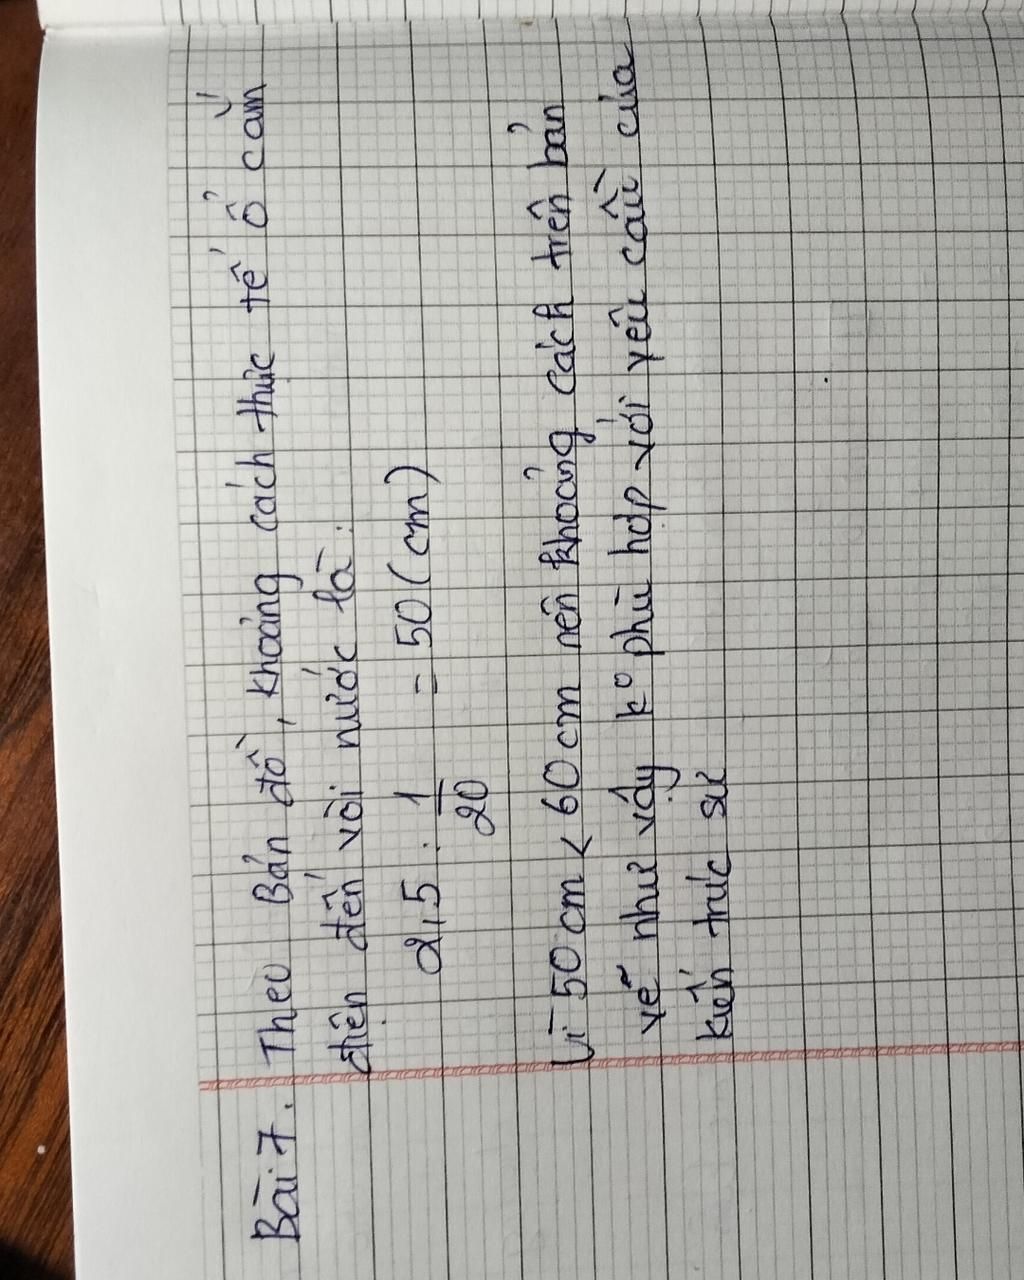 Bài 7. Theo Bản đồ, khoảng cách thực tế ổ cắm
điện đến vòi nước là:
2,5 : 1/20 = 50 (cm)
Vì 50 cm < 60 cm nên khoảng cách trên bản
vẽ như vậy ko phù hợp với yêu cầu của
kiến trúc sư